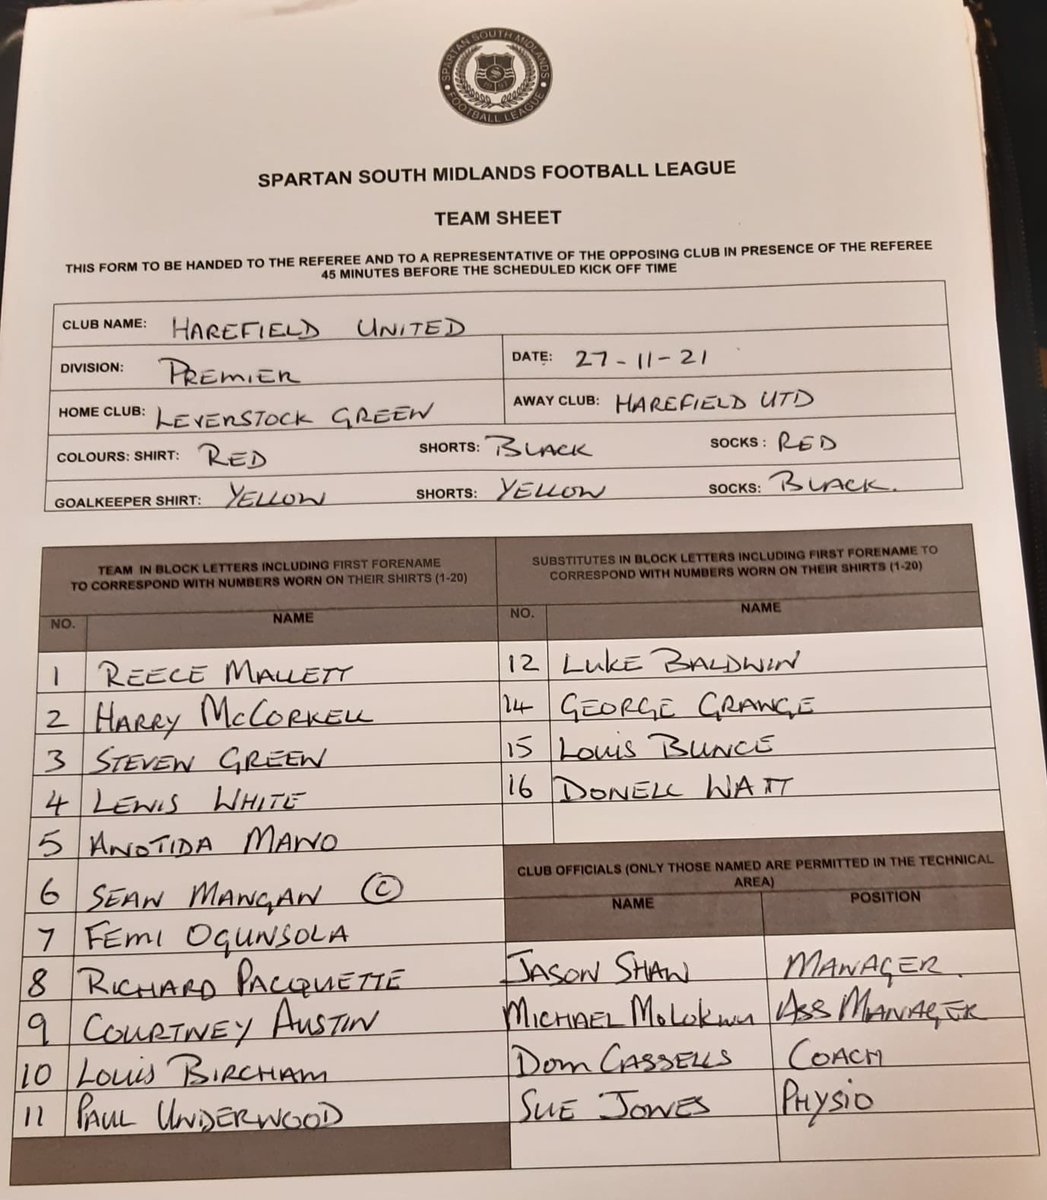 SPARTAN SOUTH MIDLANDS
FOOTBALL LEAGUE
SPARTAN SOUTH MIDLANDS FOOTBALL LEAGUE
TEAM SHEET
THIS FORM TO BE HANDED TO THE REFEREE AND TO A REPRESENTATIVE OF THE OPPOSING CLUB IN PRESENCE OF THE REFEREE
45 MINUTES BEFORE THE SCHEDULED KICK OFF TIME
CLUB NAME: HAREFIELD UNITED
DIVISION: PREMIER DATE: 27-11-21
HOME CLUB: LEVERSTOCK GREEN AWAY CLUB: HAREFIELD UTD
COLOURS: SHIRT: RED SHORTS: BLACK SOCKS: RED
GOALKEEPER SHIRT: YELLOW SHORTS: YELLOW SOCKS: BLACK.
TEAM IN BLOCK LETTERS INCLUDING FIRST FORENAME
TO CORRESPOND WITH NUMBERS WORN ON THEIR SHIRTS (1-20)
NO. NAME
1 REECE MALLETT
2 HARRY McCORKELL
3 STEVEN GREEN
4 LEWIS WHITE
5 ANOTIDA MAWO
6 SEAN MANGAN ©
7 FEMI OGUNSOLA
8 RICHARD PACQUETTE
9 COURTNEY AUSTIN
10 LOUIS BIRCHAM
11 PAUL UNDERWOOD
SUBSTITUTES IN BLOCK LETTERS INCLUDING FIRST FORENAME TO
CORRESPOND WITH NUMBERS WORN ON THEIR SHIRTS (1-20)
NO. NAME
12 LUKE BALDWIN
14 GEORGE GRANGE
15 LOUIS BUNCE
16 DONELL WATT
CLUB OFFICIALS (ONLY THOSE NAMED ARE PERMITTED IN THE TECHNICAL
AREA)
NAME POSITION
JASON SHAW MANAGER.
MICHAEL MOLOKWU ASS MANAGER
DOM CASSELLS COACH
SUE JONES PHYSIO